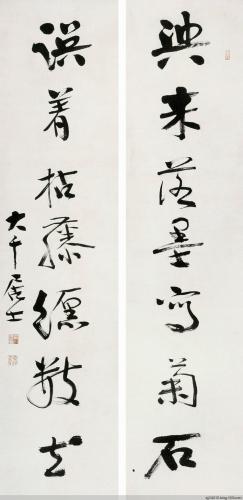 興來落墨寫菊石
誤着枯藤纏數
大千居士